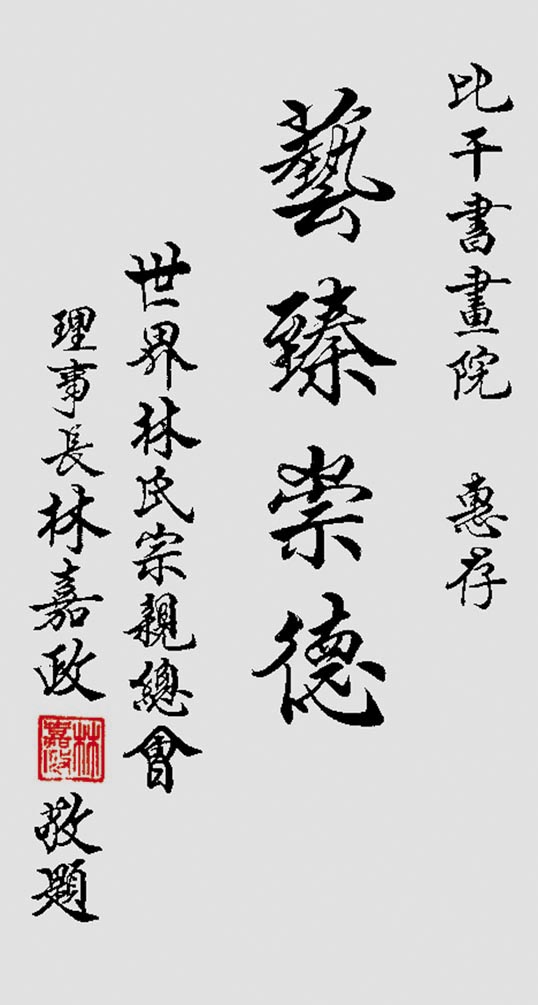 比干書畫院 惠存
藝臻崇德
世界林氏宗親總會
理事長林嘉政
林嘉政
敬題